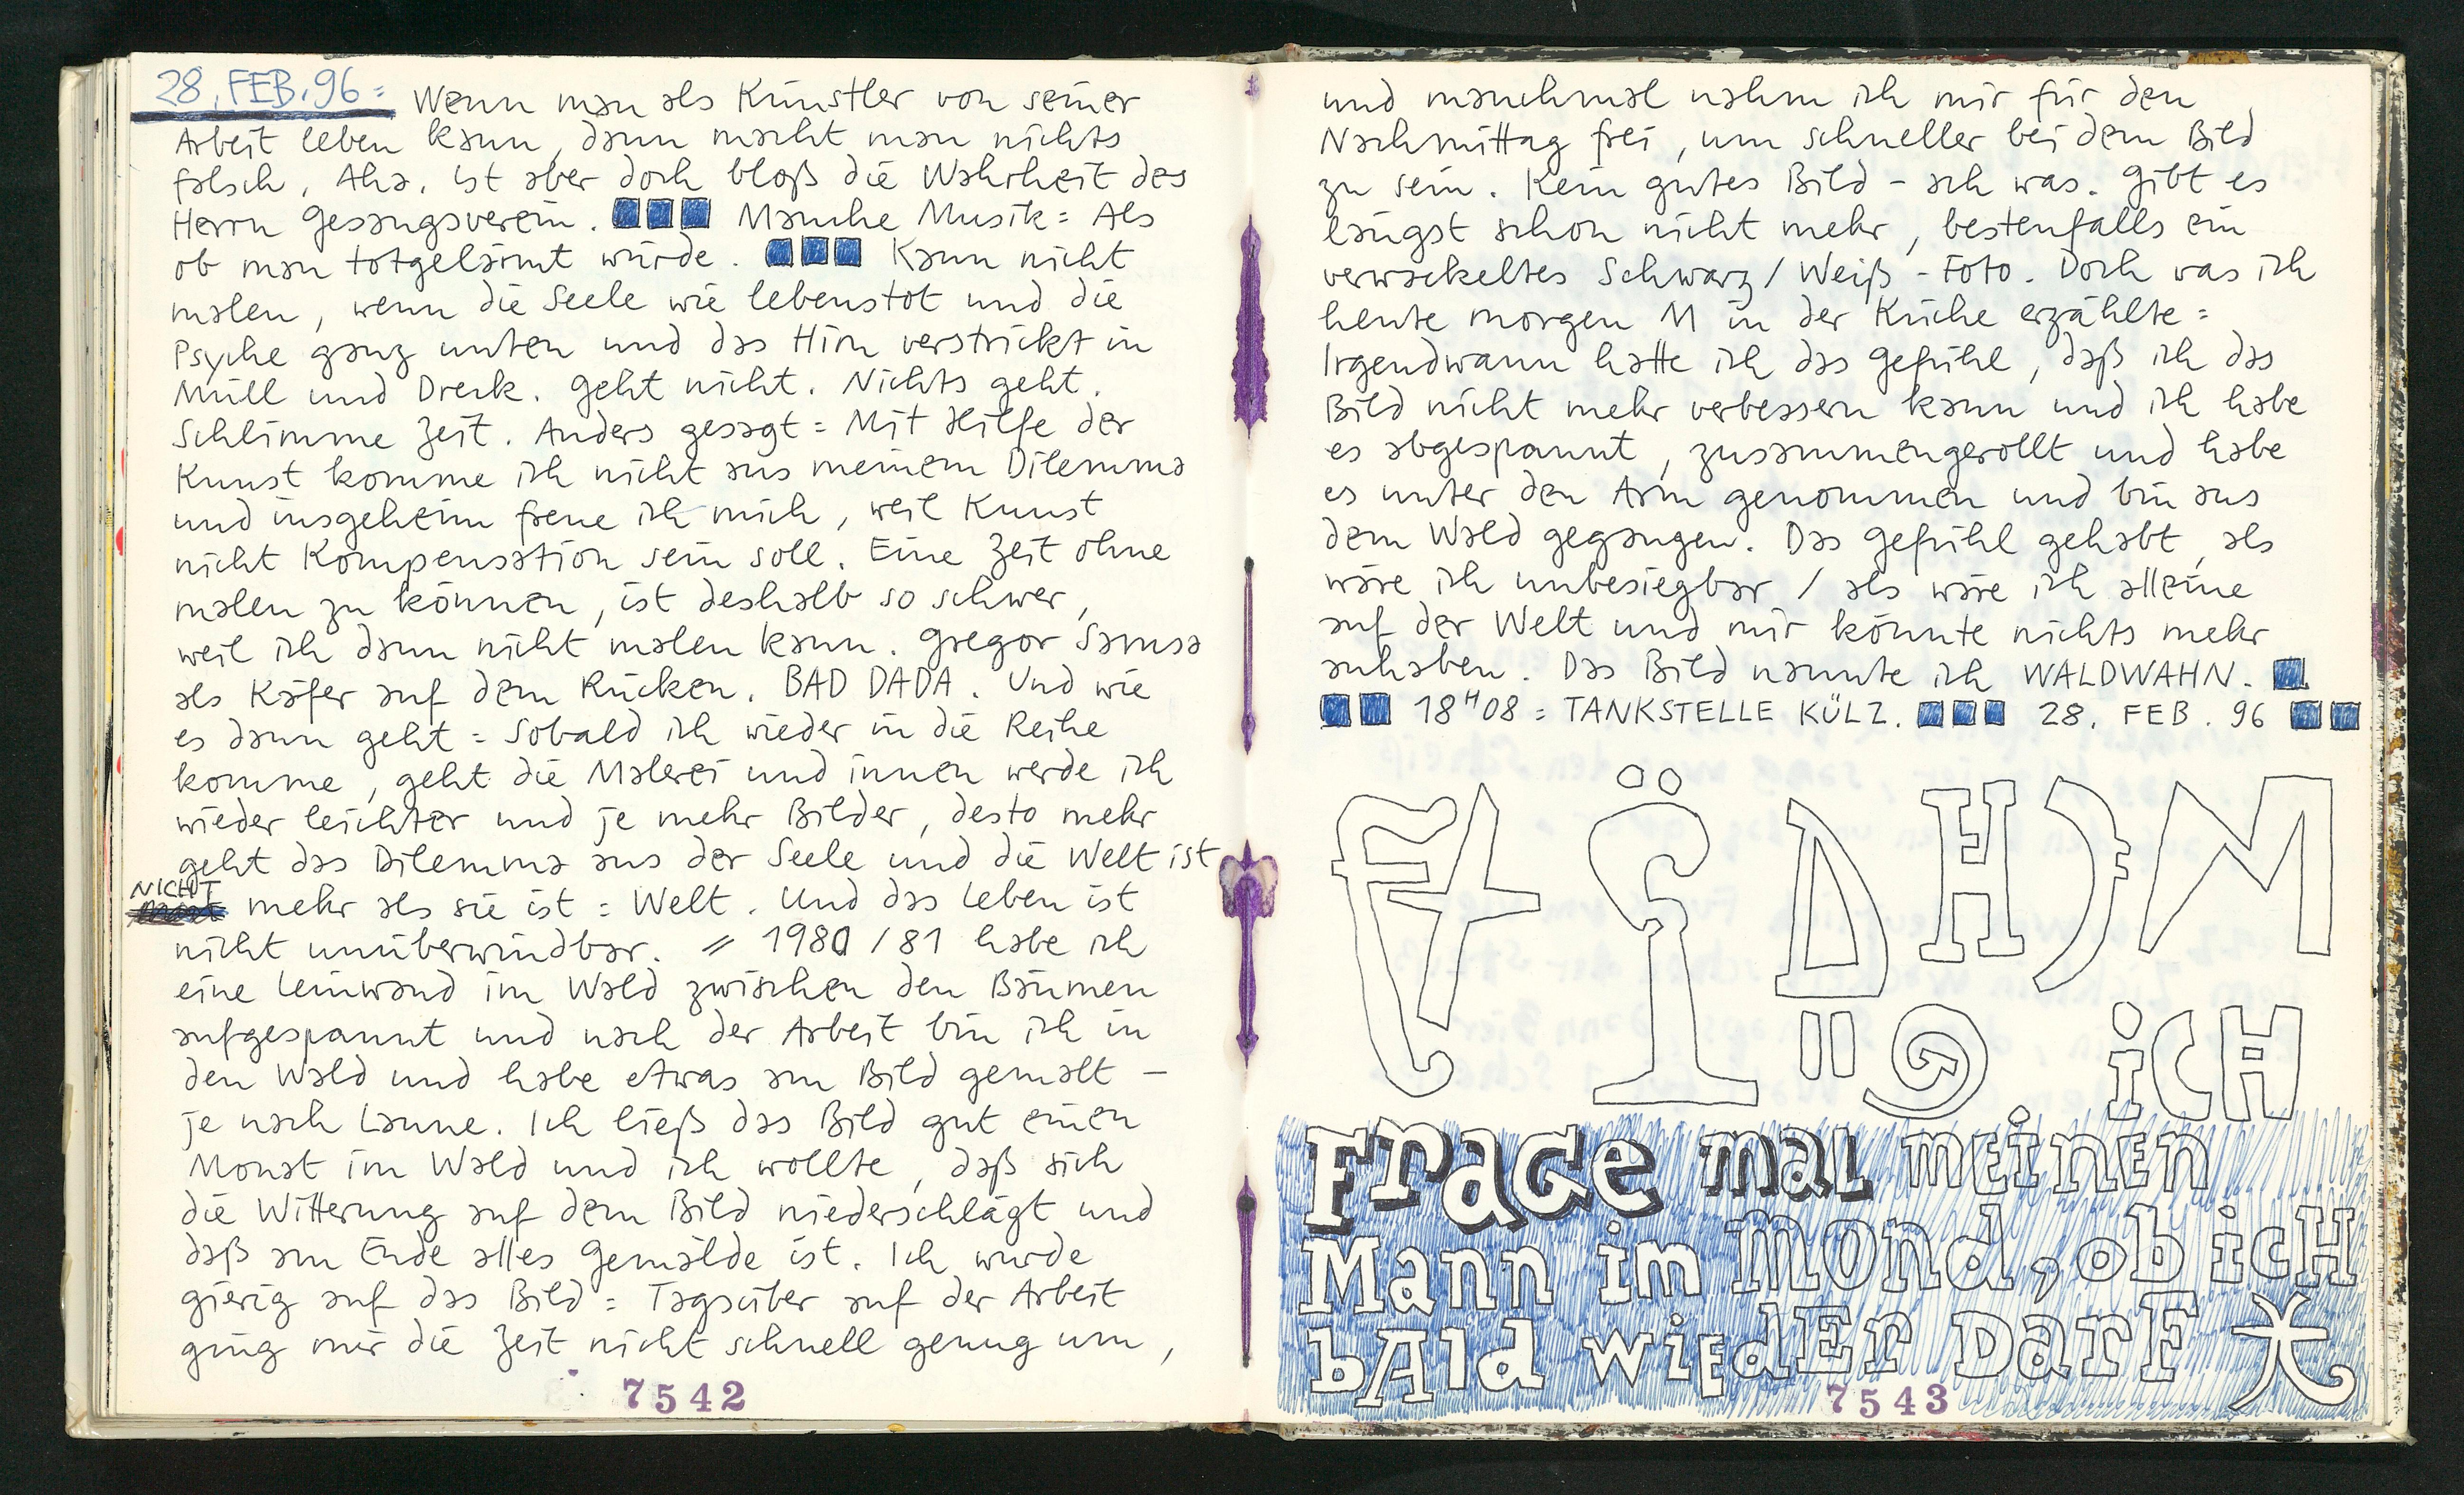 28. FEB. 96 = Wenn man als Künstler von seiner
Arbeit leben kann, dann macht man nichts
falsch. Aha. Ist aber doch bloß die Wahrheit des
Herrn Gesangsverein. Manche Musik = Als
ob man totgelärmt würde. Kann nicht
malen, wenn die Seele wie lebenstot und die
Psyche ganz unten und das Hirn verstrickt in
Müll und Dreck. Geht nicht. Nichts geht.
Schlimme Zeit. Anders gesagt = Mit Hilfe der
Kunst komme ich nicht aus meinem Dilemma
und insgeheim freue ich mich, weil Kunst
nicht Kompensation sein soll. Eine Zeit ohne
malen zu können, ist deshalb so schwer,
weil ich dann nicht malen kann. Gregor Samsa
als Käfer auf dem Rücken. BAD DADA. Und wie
es dann geht = Sobald ich wieder in die Reihe
komme, geht die Malerei und innen werde ich
wieder leichter und je mehr Bilder, desto mehr
geht das Dilemma aus der Seele und die Welt ist
NICHT mehr als sie ist = Welt. Und das Leben ist
nicht unüberwindbar. = 1980/81 habe ich
eine Leinwand im Wald zwischen den Bäumen
aufgespannt und nach der Arbeit bin ich in
den Wald und habe etwas am Bild gemalt –
je nach Laune. Ich ließ das Bild gut einen
Monat im Wald und ich wollte, daß sich
die Witterung auf dem Bild niederschlägt und
daß am Ende alles Gemälde ist. Ich wurde
gierig auf das Bild = Tagsüber auf der Arbeit
ging mir die Zeit nicht schnell genug um,
7542
und manchmal nahm ich mir für den
Nachmittag frei, um schneller bei dem Bild
zu sein. Kein gutes Bild – ach was. Gibt es
längst schon nicht mehr, bestenfalls ein
verwackeltes Schwarz/Weiß-Foto. Doch was ich
heute morgen M in der Küche erzählte =
Irgendwann hatte ich das Gefühl, daß ich das
Bild nicht mehr verbessern kann und ich habe
es abgespannt, zusammengerollt und habe
es unter den Arm genommen und bin aus
dem Wald gegangen. Das Gefühl gehabt, als
wäre ich unbesiegbar / als wäre ich alleine
auf der Welt und mir könnte nichts mehr
anhaben. Das Bild nannte ich WALDWAHN.
18H08 = TANKSTELLE KÜLZ. 28. FEB. 96
iCH
FraGe mal meinen
Mann im Mond, ob icH
bAld wiEdEr DarF
7543